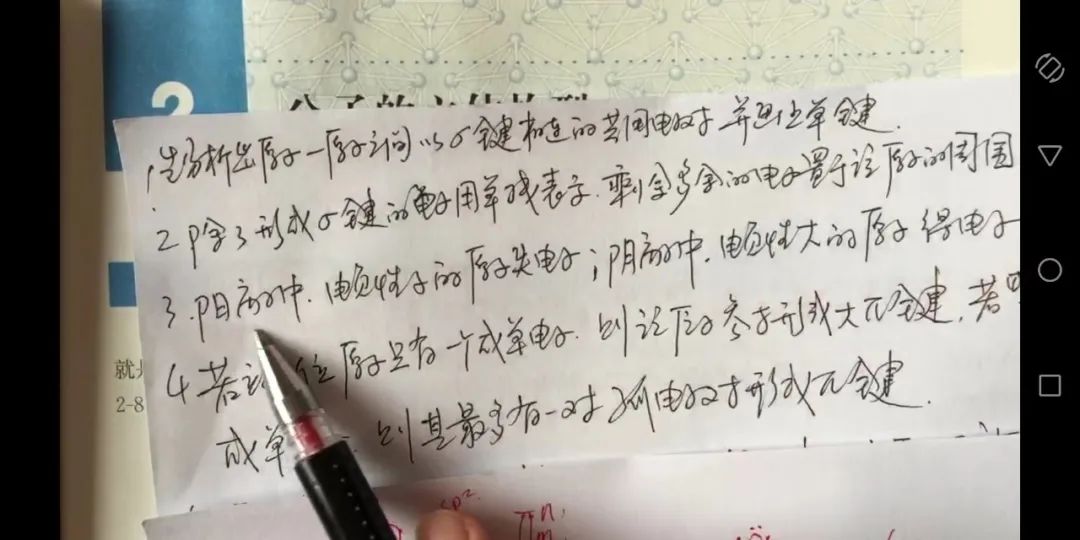 2
分子的立体构型
1,先分析出原子一原子之间以σ键相连的共用电子对并画出单键.
2 P除了形成σ键的电子用单线表示.剩余多余的电子置于该原子的周围
3.阳离子中.电负性小的原子失电子;阴离子中.电负性大的原子得电子
4 若 位原子只有一个成单电子.则该原子参与形成大π键.若
成单 则其最多有一对孤电子对形成π键.
就
2-8
sp²
π n m